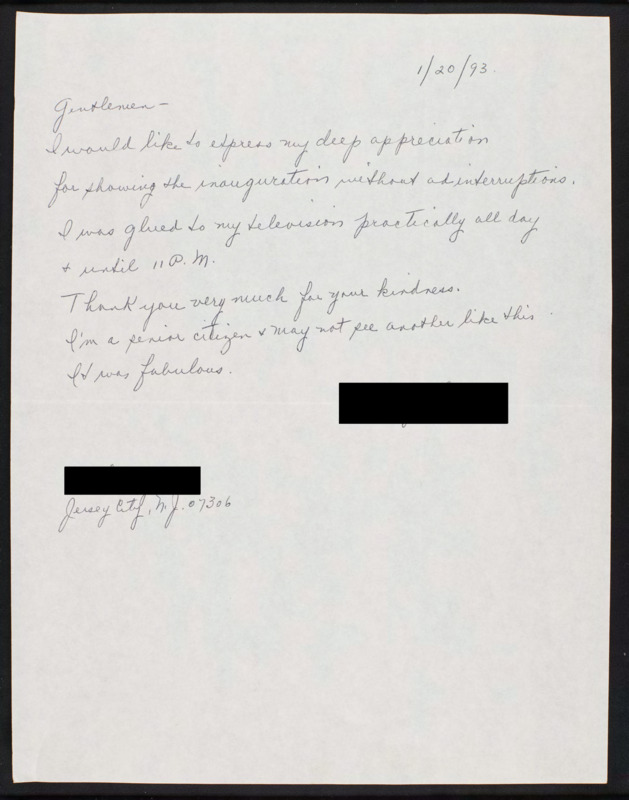 1/20/93.
Gentlemen—
I would like to express my deep appreciation
for showing the inauguration without ad interruptions.
I was glued to my television practically all day
+ until 11 P.M.
Thank you very much for your kindness.
I'm a senior citizen & may not see another like this.
It was fabulous.
Jersey City, N.J. 07306